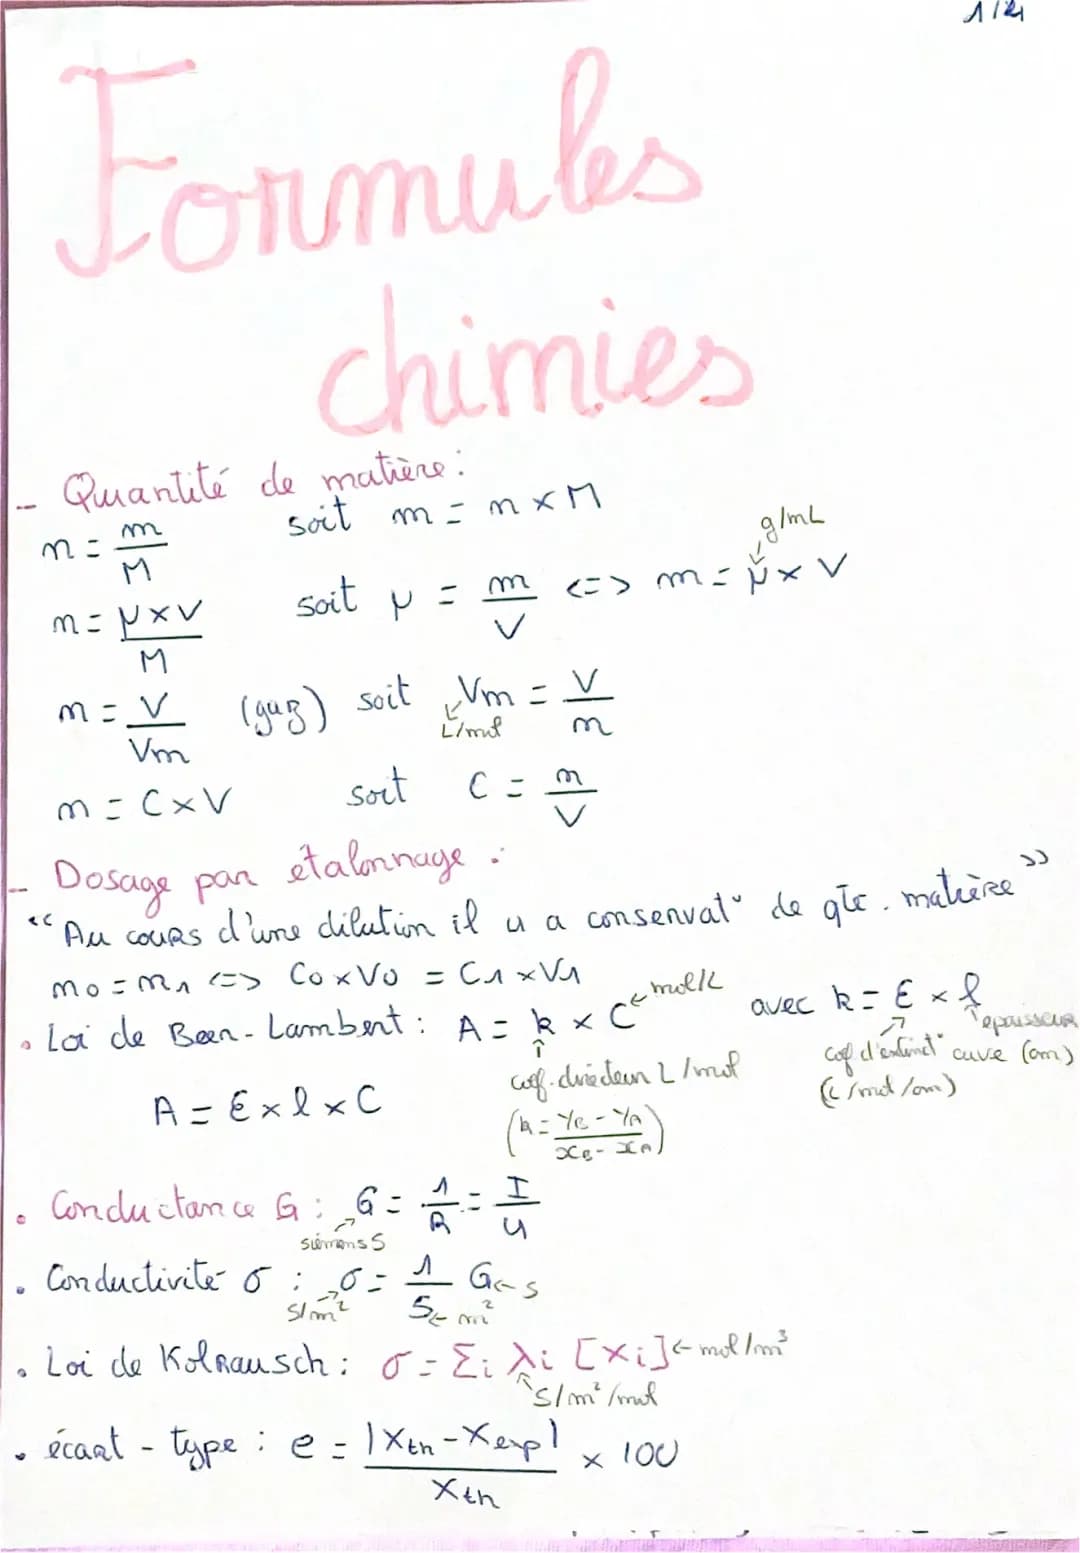 1/2
Formules
chimies
- Quantité de matière :
n = m/M soit m = n × M
n = μ×V/M soit μ = m/V <=> m = μ × V
g/mL
n = V/Vm (gaz) soit Vm = V/n
L/mol
n = C×V soit C = n/V
- Dosage par étalonnage :
"Au cours d'une dilution il y a conservat° de qte. matière"
n0 = n1 <=> C0×V0 = C1×V1
• Loi de Beer-Lambert : A = k × C ← mol/L avec k = ε × l
coef. directeur L/mol
coef d'extinct° (L/mol/cm)
epaisseur cuve (cm)
A = ε × l × C
(k = yB - yA / xB - xA)
• Conductance G : G = 1/R = I/U
siemens S
• Conductivité σ : σ = 1/S G ← S
S/m²
← m²
• Loi de Kolrausch : σ = Σi λi [Xi] ← mol/m³
S/m²/mol
• écart-type : e = |Xth - Xexp|/Xth × 100